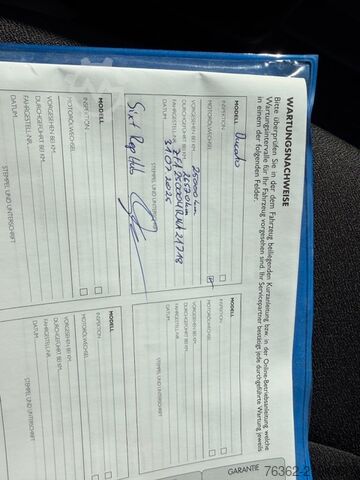 WARTUNGSNACHWEISE
Bitte überprüfen Sie in der dem Fahrzeug beiliegenden Kurzanleitung bzw. in der Online-Betriebsanleitung welche
Wartungsintervalle für Ihr Fahrzeug vorgesehen sind. Ihr Servicepartner bestätigt jede durchgeführte Wartung jeweils
in einem der folgenden Felder.
MODELL Ducato
INSPEKTION
MOTORÖLWECHSEL
VORGESEHEN BEI KM
DURCHGEFÜHRT BEI KM
FAHRGESTELL-NR.
DATUM 31.07.2025
STEMPEL UND UNTERSCHRIFT
MODELL
INSPEKTION
MOTORÖLWECHSEL
VORGESEHEN BEI KM
DURCHGEFÜHRT BEI KM
FAHRGESTELL-NR.
DATUM
STEMPEL UND UNTERSCHRIFT
MODELL
INSPEKTION
MOTORÖLWECHSEL
VORGESEHEN BEI KM
DURCHGEFÜHRT BEI KM
FAHRGESTELL-NR.
DATUM
STEMPEL UND UNTERSCHRIFT
MODELL
INSPEKTION
MOTORÖLWECHSEL
VORGESEHEN BEI KM
DURCHGEFÜHRT BEI KM
FAHRGESTELL-NR.
DATUM
STEMPEL UND UNTERSCHRIFT
GARANTIE